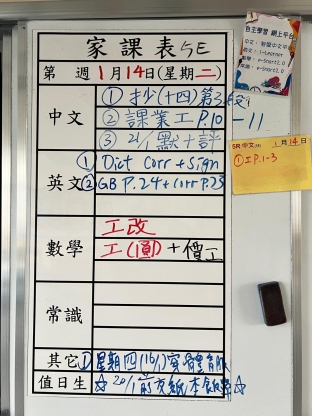 家課表5E
第 週 1月14日(星期二)
中文
①抄(十四)第3段
②課業工P.10-11
③21/1默十評
英文
①Dict Corr + Sign
②GB P.24 + Corr P.23
數學
工改
工(1頁)+價工
常識
其它
①星期四(16/1)穿體育服
值日生
自主學習 網上平台
5R 中文 1月14日
①工P.1-3